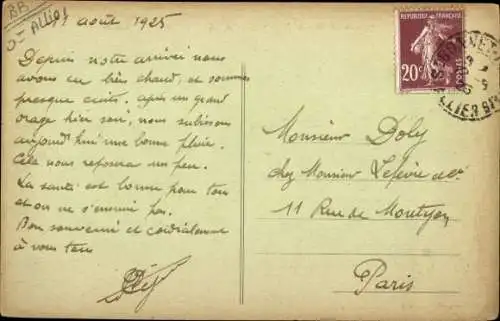 BB
Allier
août 1925
Depuis notre arrivée nous
avons eu bien chaud, et sommes
presque cuits. après un grand
orage hier soir, nous subissons
aujourd'hui une bonne pluie.
Cela nous reposera un peu.
La santé est bonne pour tous
et on ne s'ennui pas.
Bon souvenir et cordialement
à vous tous
REPUBLIQUE FRANÇAISE
20c
POSTES
ALLIER
Monsieur Doly
chez Monsieur Lefèvre
11 Rue de Montyon
Paris